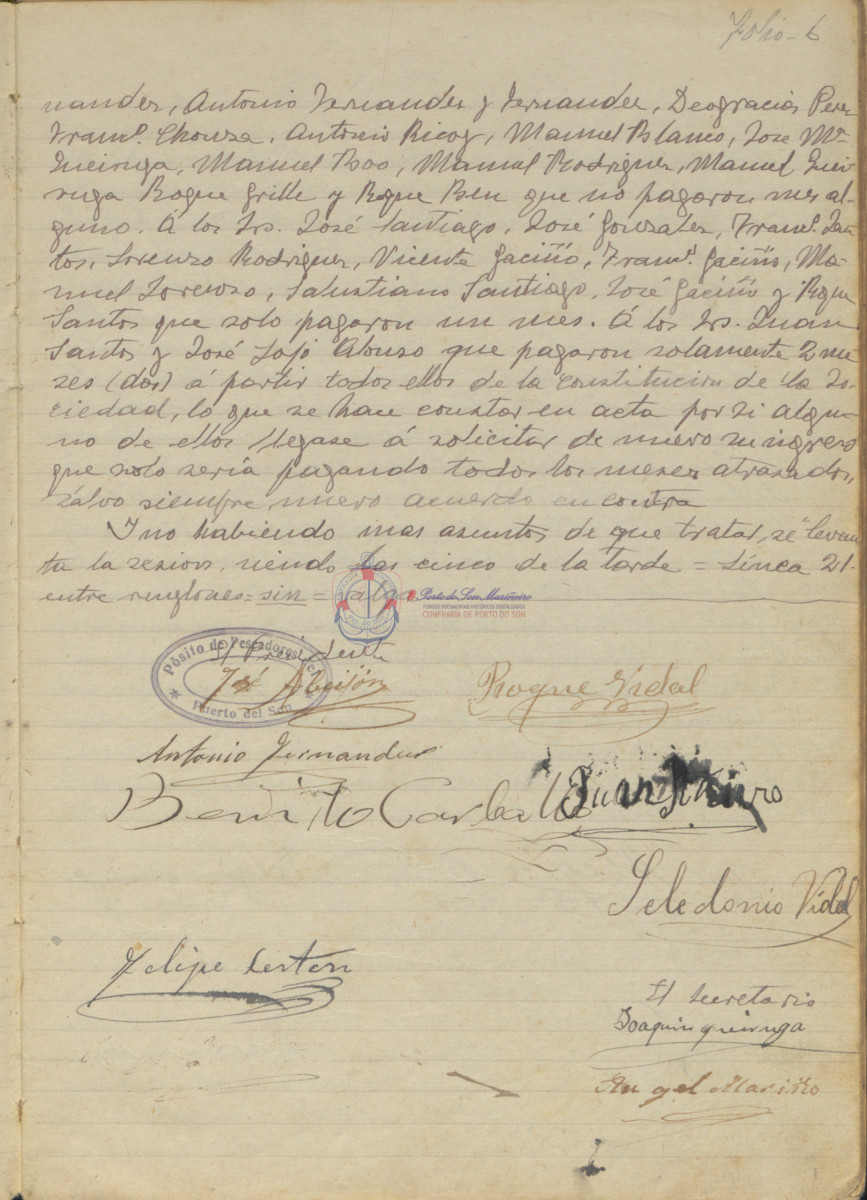 Folio - 6
nandez, Antonio Fernandez y Fernandez, Deogracias Perez
Franco. Chouza, Antonio Ricoy, Manuel Blanco, José Mª
Queiruga, Manuel Boo, Manuel Rodriguez, Manuel Quei-
ruga Roque Grille y Roque Ben que no pagaron mes al-
guno. Á los Srs. José Santiago, José Gonzalez, Franco. San-
tos, Lorenzo Rodriguez, Vicente Gaciño, Franco. Gaciño, Ma-
nuel Lorenzo, Salustiano Santiago, José Gaciño y Roque
Santos que solo pagaron un mes. Á los Srs. Juan
Santos y José Lojo Alonso que pagaron solamente 2 me
ses (dos) á partir todos ellos de la constitucion de la So-
ciedad, lo que se hace constar en acta por si algu-
no de ellos llegase á solicitar de nuevo su ingreso
que solo sería pagando todos los meses atrasados,
salvo siempre nuevo acuerdo en contra
Y no habiendo mas asuntos de que tratar, se levan
ta la sesion, siendo las cinco de la tarde = Línea 21-
entre renglones = sin = valga
Porto do Son Mariñeiro
FONDOS DOCUMENTAIS HISTÓRICOS DIXITALIZADOS
CONFRARÍA DE PORTO DO SON
El Presidente
Pósito de Pescadores del
Puerto del Son
José Abeijón
Roque Vidal
Antonio Fernandez
Benito Carballo
Juan
Seledonio Vidal
Felipe
El Secretario
Joaquin Queiruga
Angel Mariño